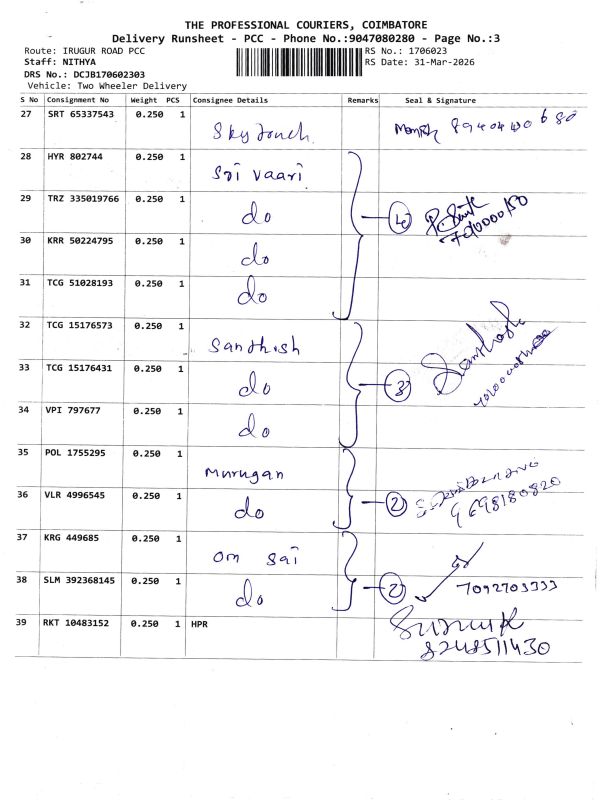 THE PROFESSIONAL COURIERS, COIMBATORE
Delivery Runsheet - PCC - Phone No.:9047080280 - Page No.:3
Route: IRUGUR ROAD PCC RS No.: 1706023
Staff: NITHYA RS Date: 31-Mar-2026
DRS No.: DCJB170602303
Vehicle: Two Wheeler Delivery
S No Consignment No Weight PCS Consignee Details Remarks Seal & Signature
27 SRT 65337543 0.250 1 Sky touch
28 HYR 802744 0.250 1 Sri vaari
29 TRZ 335019766 0.250 1 do 4
30 KRR 50224795 0.250 1 do
31 TCG 51028193 0.250 1 do
32 TCG 15176573 0.250 1 Santhish
33 TCG 15176431 0.250 1 do 3
34 VPI 797677 0.250 1 do
35 POL 1755295 0.250 1 Murugan
36 VLR 4996545 0.250 1 do 2 9698180820
37 KRG 449685 0.250 1 om sai
38 SLM 392368145 0.250 1 do 2 7092703333
39 RKT 10483152 0.250 1 HPR
8248511430